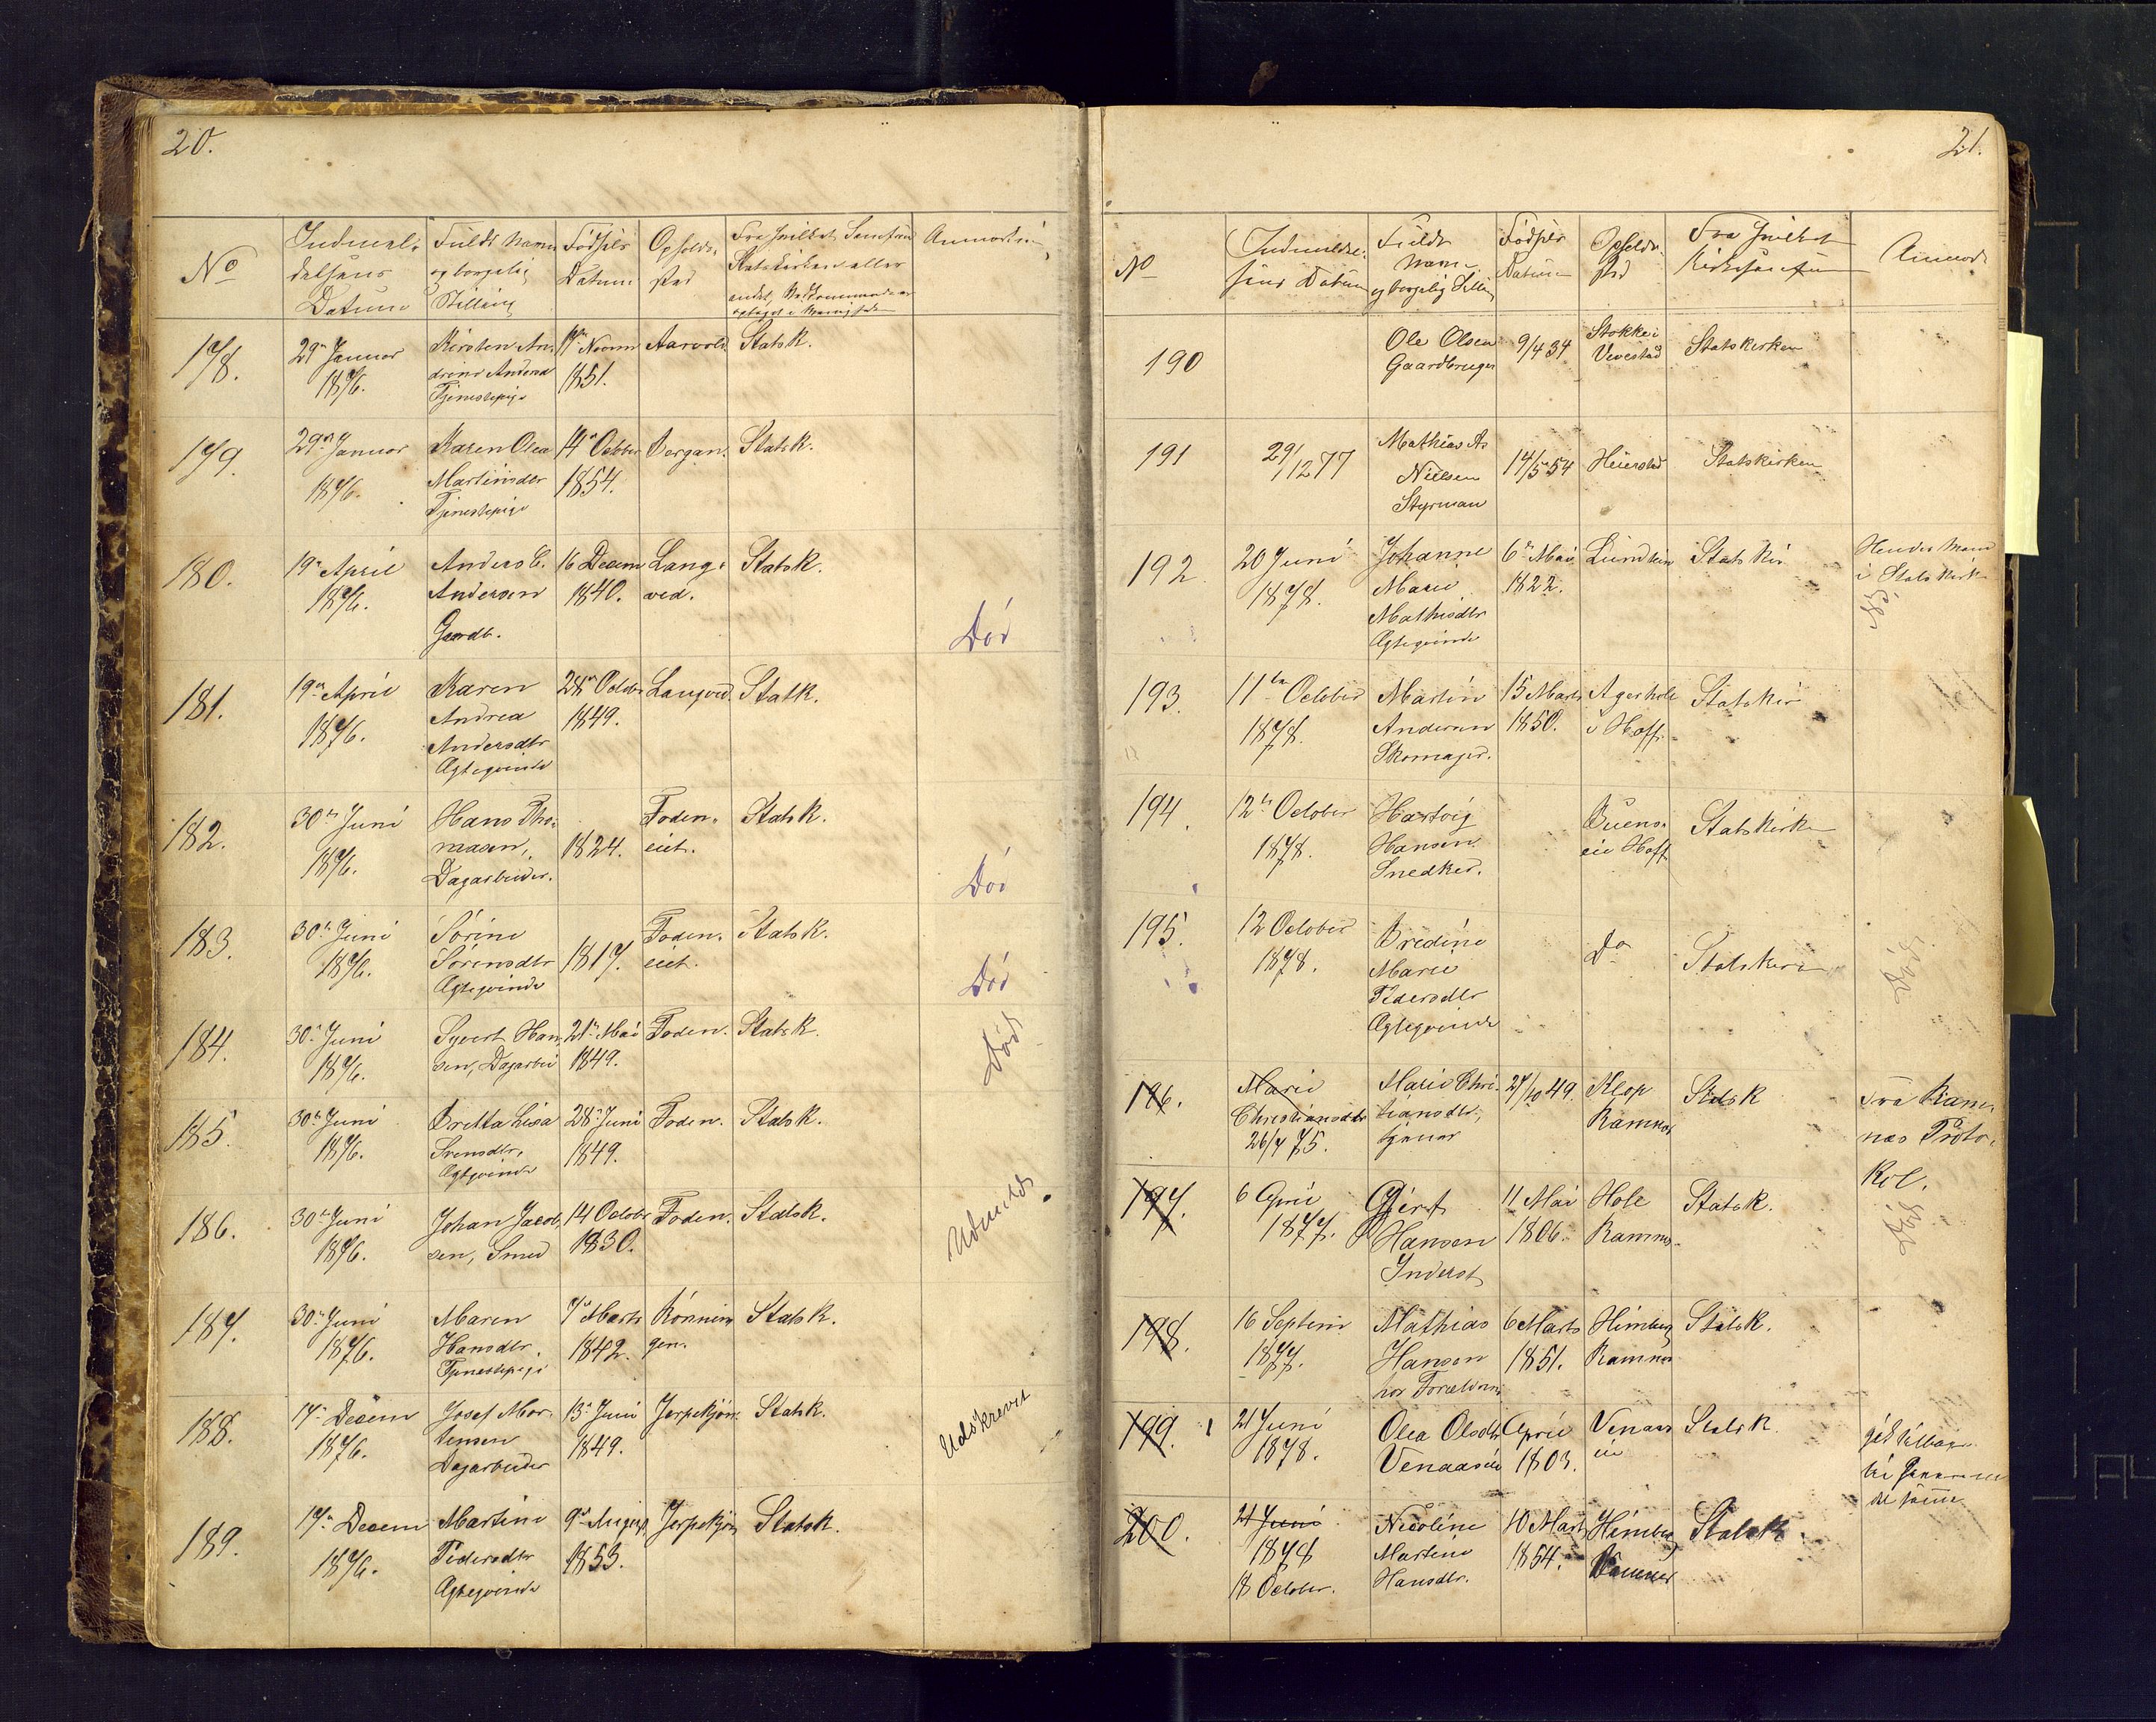 20.
No
Indmel-
delsens
Datum
Fulde Navn
og borgelig
Stilling
Fødsels
Datum
Opholds-
sted
Fra hvilket Samfun
Statskirken eller
andet
178.
29n Januar
1876.
Kirsten An-
drine Anders
Tjenestepige
1851.
Aarvold
Statsk.
179.
29n Januar
1876.
Karen Olea
Martinsdtr
Tjenestepige
14n October
1854.
Bergan.
Statsk.
180.
19n April
1876.
Anders C.
Andersen
Gaardb.
16 Decem
1840.
Lang-
ved.
Statsk.
Død
181.
19n April
1876.
Karen
Andrea
Andersdtr
Ægteqvinde
1849.
Langved.
Statk.
182.
30te Juni
1876.
Hans Tho-
masen,
Dagarbeider.
1824.
Foden-
eiet.
Statsk.
Død
183.
30te Juni
1876.
Sørine
Sørensdtr
Ægteqvinde
1817.
Foden-
eiet.
Statsk.
Død
184.
30te Juni
1876.
Syvert Han-
sen, Dagarbei
21n Mai
1849.
Foden.
Statsk.
Død
185.
30te Juni
1876.
Britta Lisa
Svensdtr,
Ægteqvinde
28n Juni
1849.
Foden.
Statsk.
186.
30te Juni
1876.
Johan Jacob-
sen, Smed
14 October
1830.
Foden.
Statsk.
Udmeldt
187.
30te Juni
1876.
Maren
Hansdtr.
Tjenestepige
7n Marts
1842.
Rønnin-
gen.
Statsk.
188.
17n Decem
1876.
Josef Mor-
tensen
Dagarbeider
13n Juni
1849.
Jerpekjøn
Statsk.
Udskrevet
189.
17n Decem
1876.
Martine
Pedersdtr
Ægteqvinde
9n August
1853.
Jerpekjøn
Statsk.
21.
No
Indmeldel-
sens Datum
Fulde
Navn
og borgelig Stilling
Fødsels
Datum
Opholds-
sted
Fra hvilket
Kirkesamfun
Anmærk
190
Ole Olsen
Gaardbruger
9/4 34
Stokke i
Vivestad
Statskirken
191
29/12 77
Mathias As
Nielsen
Styrman
14/5 54
Heierstad
Statskirken
192.
20 Juni
1878.
Johanne
Marie
Mathisdtr
Ægteqvinde
6te Mai
1822.
Statskir
Hendes Mand
i Statskirk
Død
193.
11te October
1878.
Martin
Andersen
Skomager.
15 Marts
1850.
Agerholt
i Hoff.
Statskir
194.
12te October
1878.
Hartvig
Hansen
Snedker.
Buens-
eie Hoff
Statskirke
195.
12 October
1878.
Bredine
Marie
Pedersdtr
Ægteqvinde
Do
Statskirke
Død
196.
Marie
Christiansdtr
26/4 75.
Marie Chri-
tiansdtr,
tjener
27/10 49.
Klop
Ramnes
Statsk
Fra Ram-
nes Proto-
kol.
197.
6 April
1877.
Gjert
Hansen
Inderst
11 Mai
1806.
Hole
Ramnes
Statsk.
Død
198.
16 Septem
1877.
Mathias
Hansen
hos Forældrene
6 Marts
1851.
Himberg
Ramnes
Statsk.
199.
21 Juni
1878.
Olea Olsdtr
Venaaseie
April
1803.
Venaas
eie
Statsk.
gik tilbage
til
det samme
200.
21 Juni
1878
18 October.
Nicoline
Martine
Hansdtr.
10 Marts
1854.
Himberg
Ramnes
Statsk.